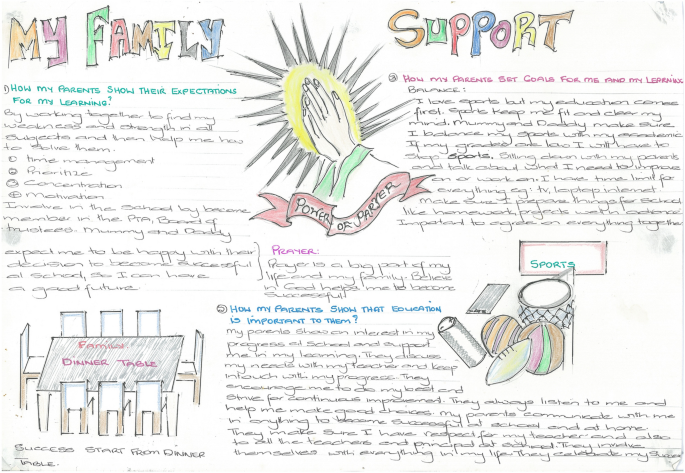 MY FAMILY SUPPORT
1) HOW MY PARENTS SHOW THEIR EXPECTATIONS
FOR MY LEARNING?
By working together to find my
weakness and strength in all
subjects and then help me how
to solve them.
① time management
② Prioritize
③ Concentration
④ Motivation
Involve in the school by become
member in the PTA, Board of
trustees. Mummy and Daddy
expect me to be happy with their
decision to become successful
at school, so I can have
a good future
POWER OF PRAYER
PRAYER:
Prayer is a big part of my
life and my family. Believe
in God helps me to become
successful
FAMILY
DINNER TABLE
SUCCESS START FROM DINNER
TABLE.
② HOW MY PARENTS SHOW THAT EDUCATION
IS IMPORTANT TO THEM?
my parents show an interest in my
progress at School and support
me in my learning. They discuss
my needs with my teacher and keep
intouch with my progress. They
encourage me to do my best and
strive for continuous improvement. They always listen to me and
help me make good choices. my parents communicate with me
in anything to become successful at school and at home.
They make sure I have respect for my teacher and also
to all the teachers and people at school. They involve
themselves with everything in my life. They celebrate my success
③ HOW MY PARENTS SET GOALS FOR ME AND MY LEARNING
BALANCE:
I love sports but my education comes
first. Sports keep me fit and clear my
mind. Mummy and Daddy make sure
I balance my sports with my academic
If my graded are low I will have to
stop sports. Sitting down with my parents
and talk about what I need to improve
on or work on. I have time limit for
everything eg: tv, laptop internet.
Make sure I prepare things for school
like homework, projects
Important to agree on everything together
SPORTS